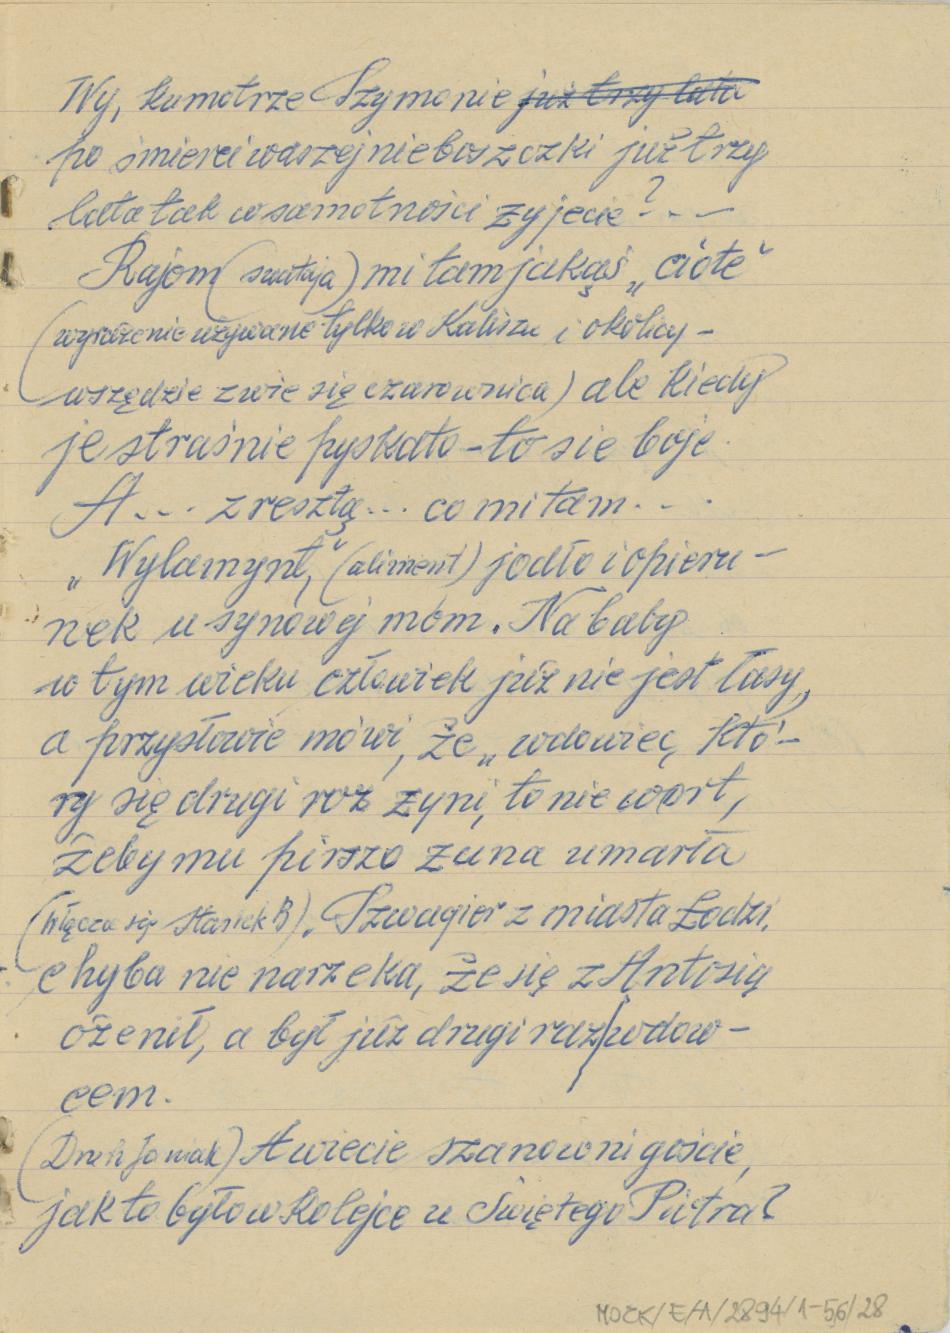 Wy, kumotrze Szymonie już trzy lata
po śmierci waszej nieboszczki już trzy
lata tak w samotności zyjecie? . . —
Rajom (swatają) mi tam jakąś „ciôtę”
(wyrażenie używane tylko w Kaliszu i okolicy –
wszędzie zwie się czarownica) ale kiedy
je straśnie pyskato – to sie boje.
A . . . zresztą . . . co mi tam . . .
„Wylamynt” (aliment) jodło i opieru –
nek u synowej mom. Na baby
w tym wieku człowiek już nie jest łasy,
a przysłowie mówi, że „wdowiec, któ –
ry się drugi roz zyni, to nie wort,
żeby mu pirszo zuna umarła
(włącza się Stasiek B). Szwagier z miasta Łodzi,
chyba nie narzeka, że się z Antosią
ożenił, a był już drugi raz wdow –
cem.
(Druh Joniak) A wiecie szanowni goście,
jak to było w kolejce u Świętego Piotra?
MOZK/E/A/2894/1-56/28